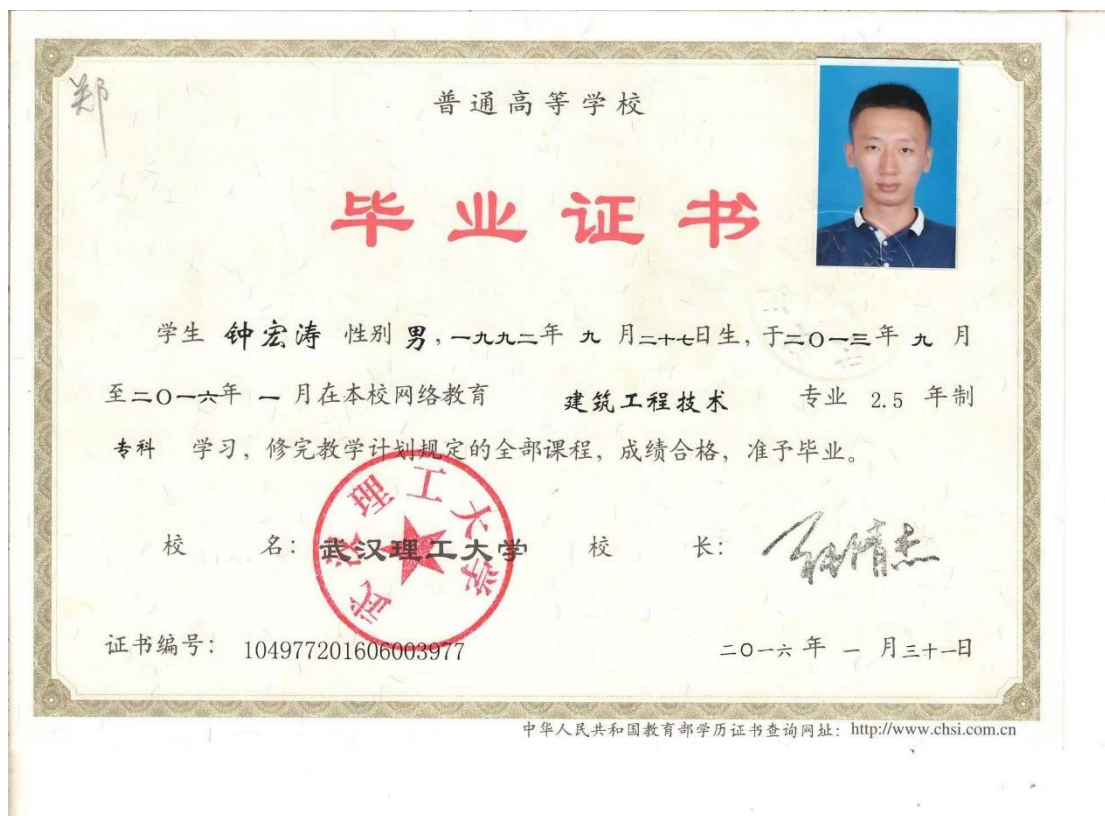 郑
普通高等学校
毕业证书
学生 钟宏涛 性别 男，一九九二年 九 月二十七日生，于二〇一三年 九 月
至二〇一六年 一 月在本校网络教育 建筑工程技术 专业 2.5 年制
专科 学习，修完教学计划规定的全部课程，成绩合格，准予毕业。
校 名：武汉理工大学 校 长：
武汉理工大学
证书编号：104977201606003977 二〇一六 年 一 月三十一日
中华人民共和国教育部学历证书查询网址：http://www.chsi.com.cn